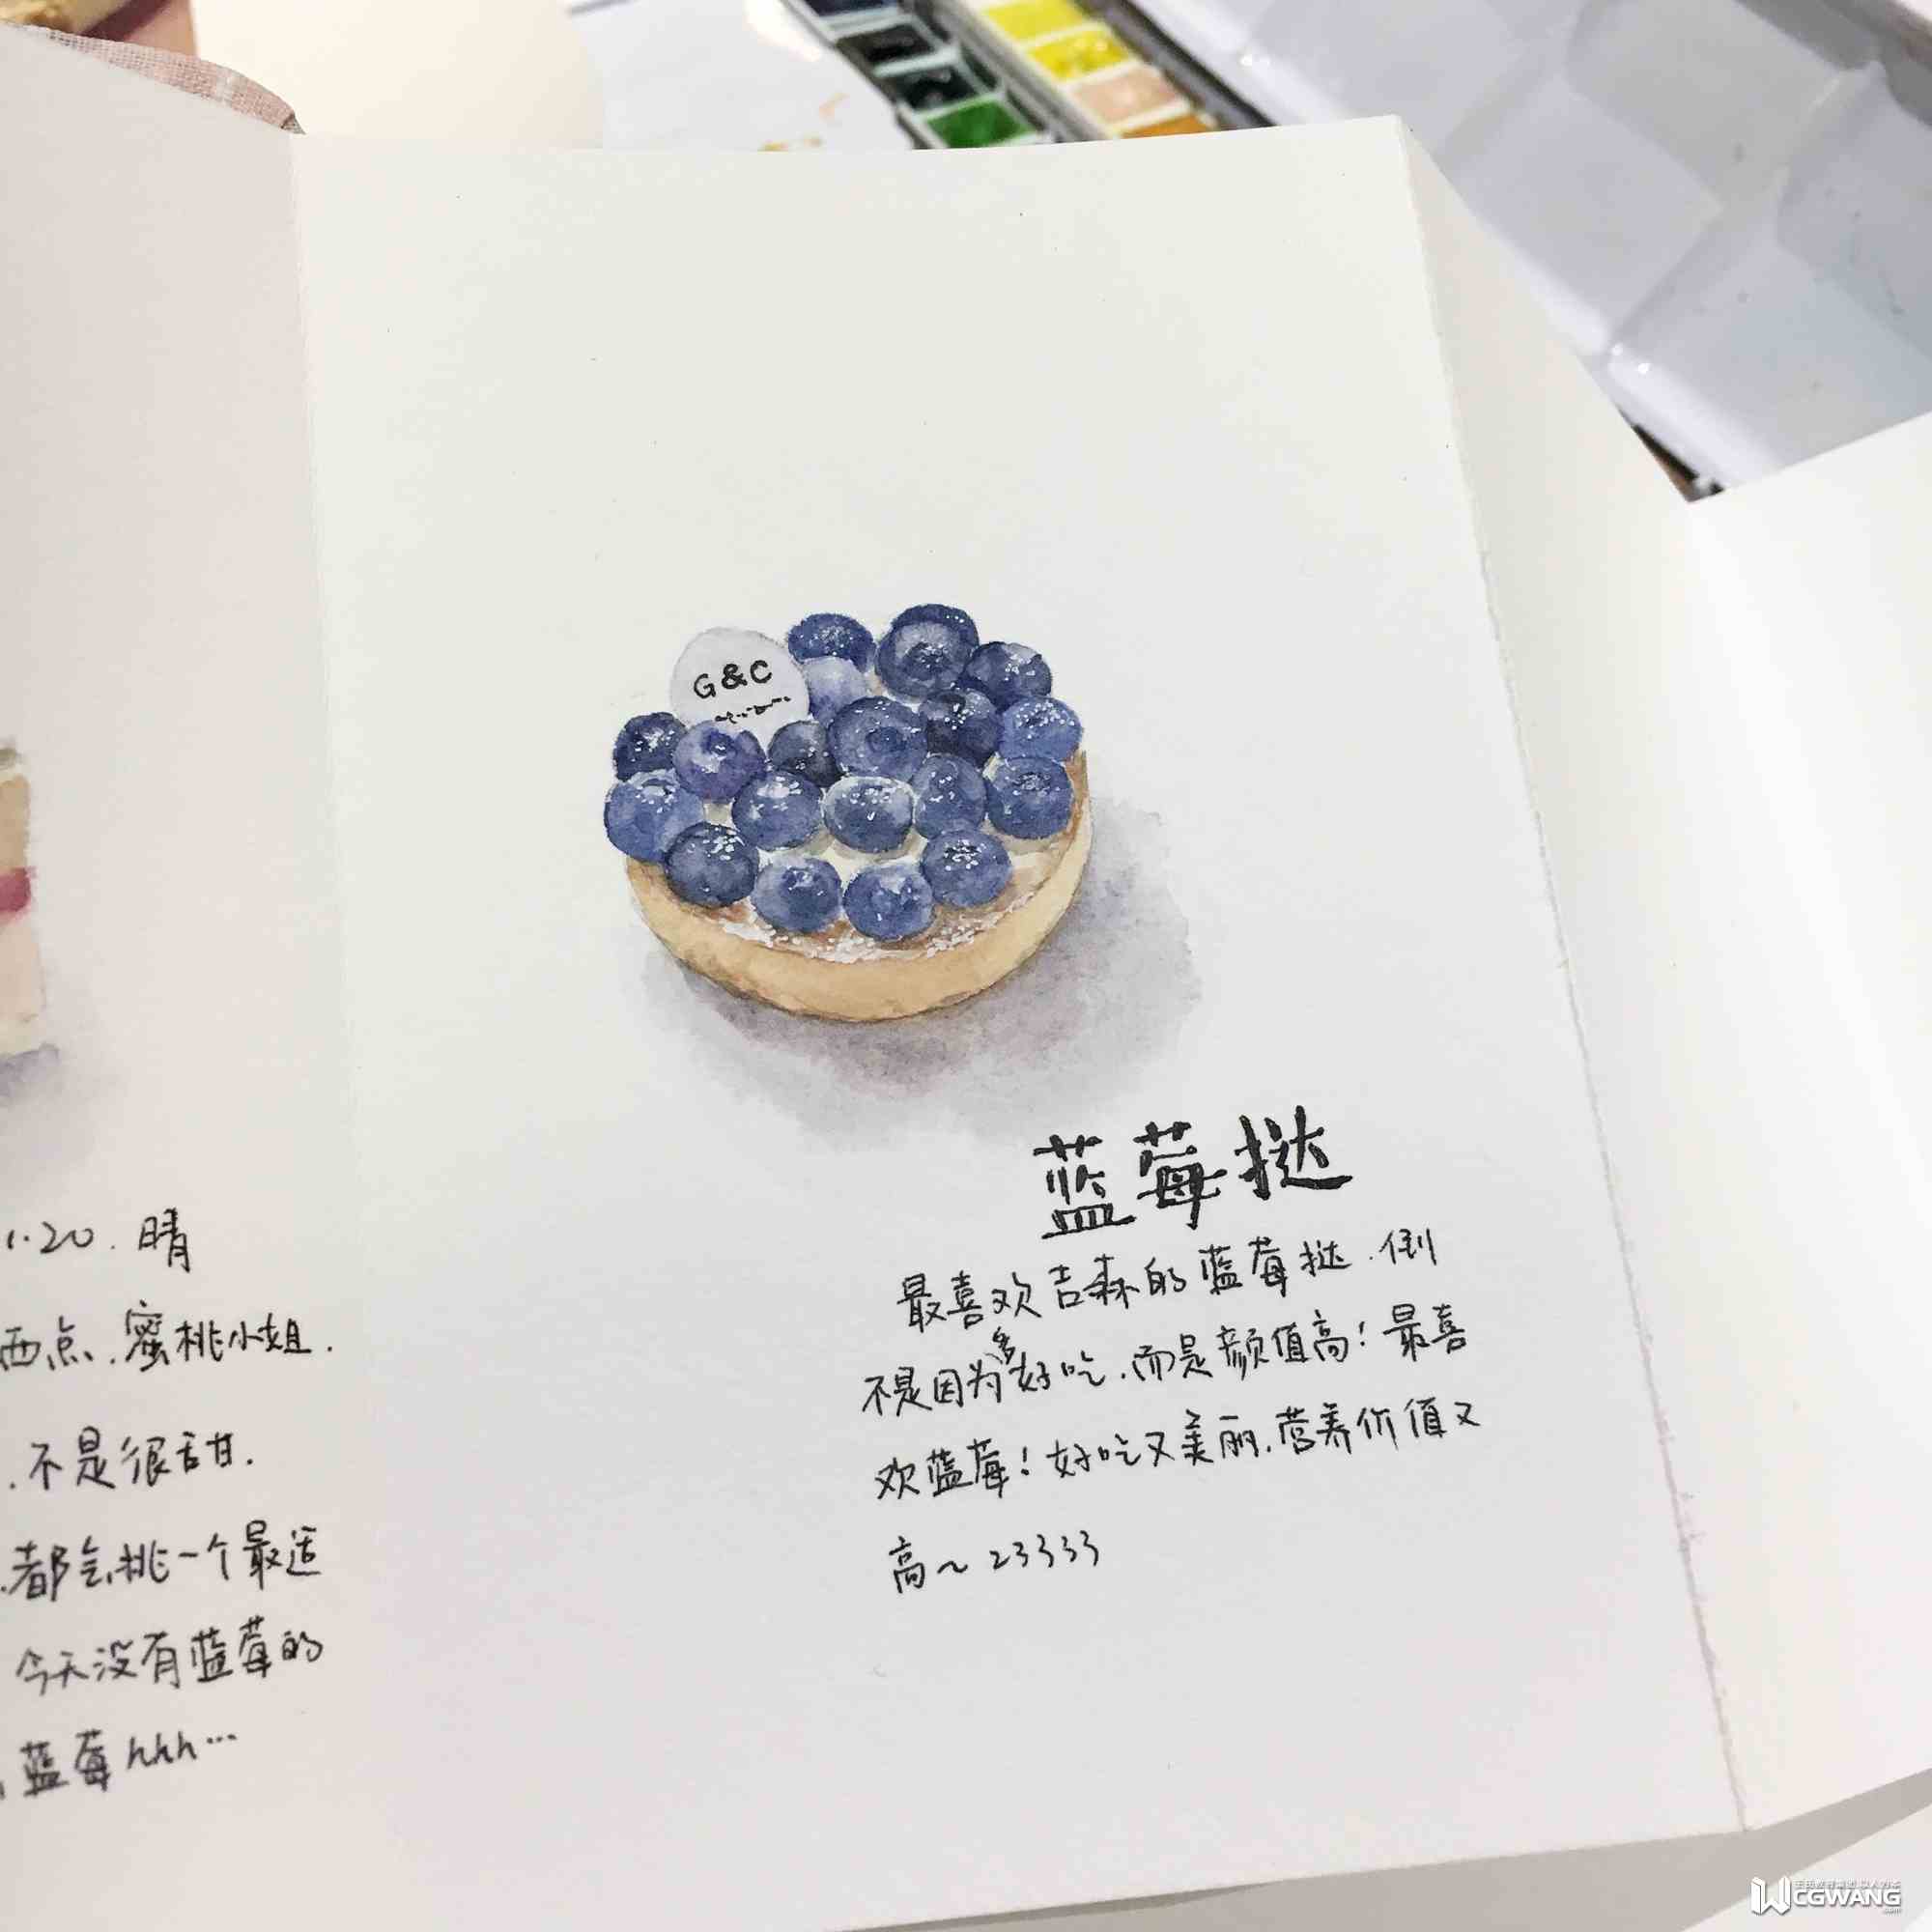 G&C
1.20.晴
西点.蜜桃小姐.
.不是很甜.
.都会挑一个最适
今天没有蓝莓的
蓝莓hhh…
蓝莓挞
最喜欢吉森的蓝莓挞.倒
不是因为多好吃.而是颜值高!最喜
欢蓝莓!好吃又美丽.营养价值又
高~23333
CGWANG
.com